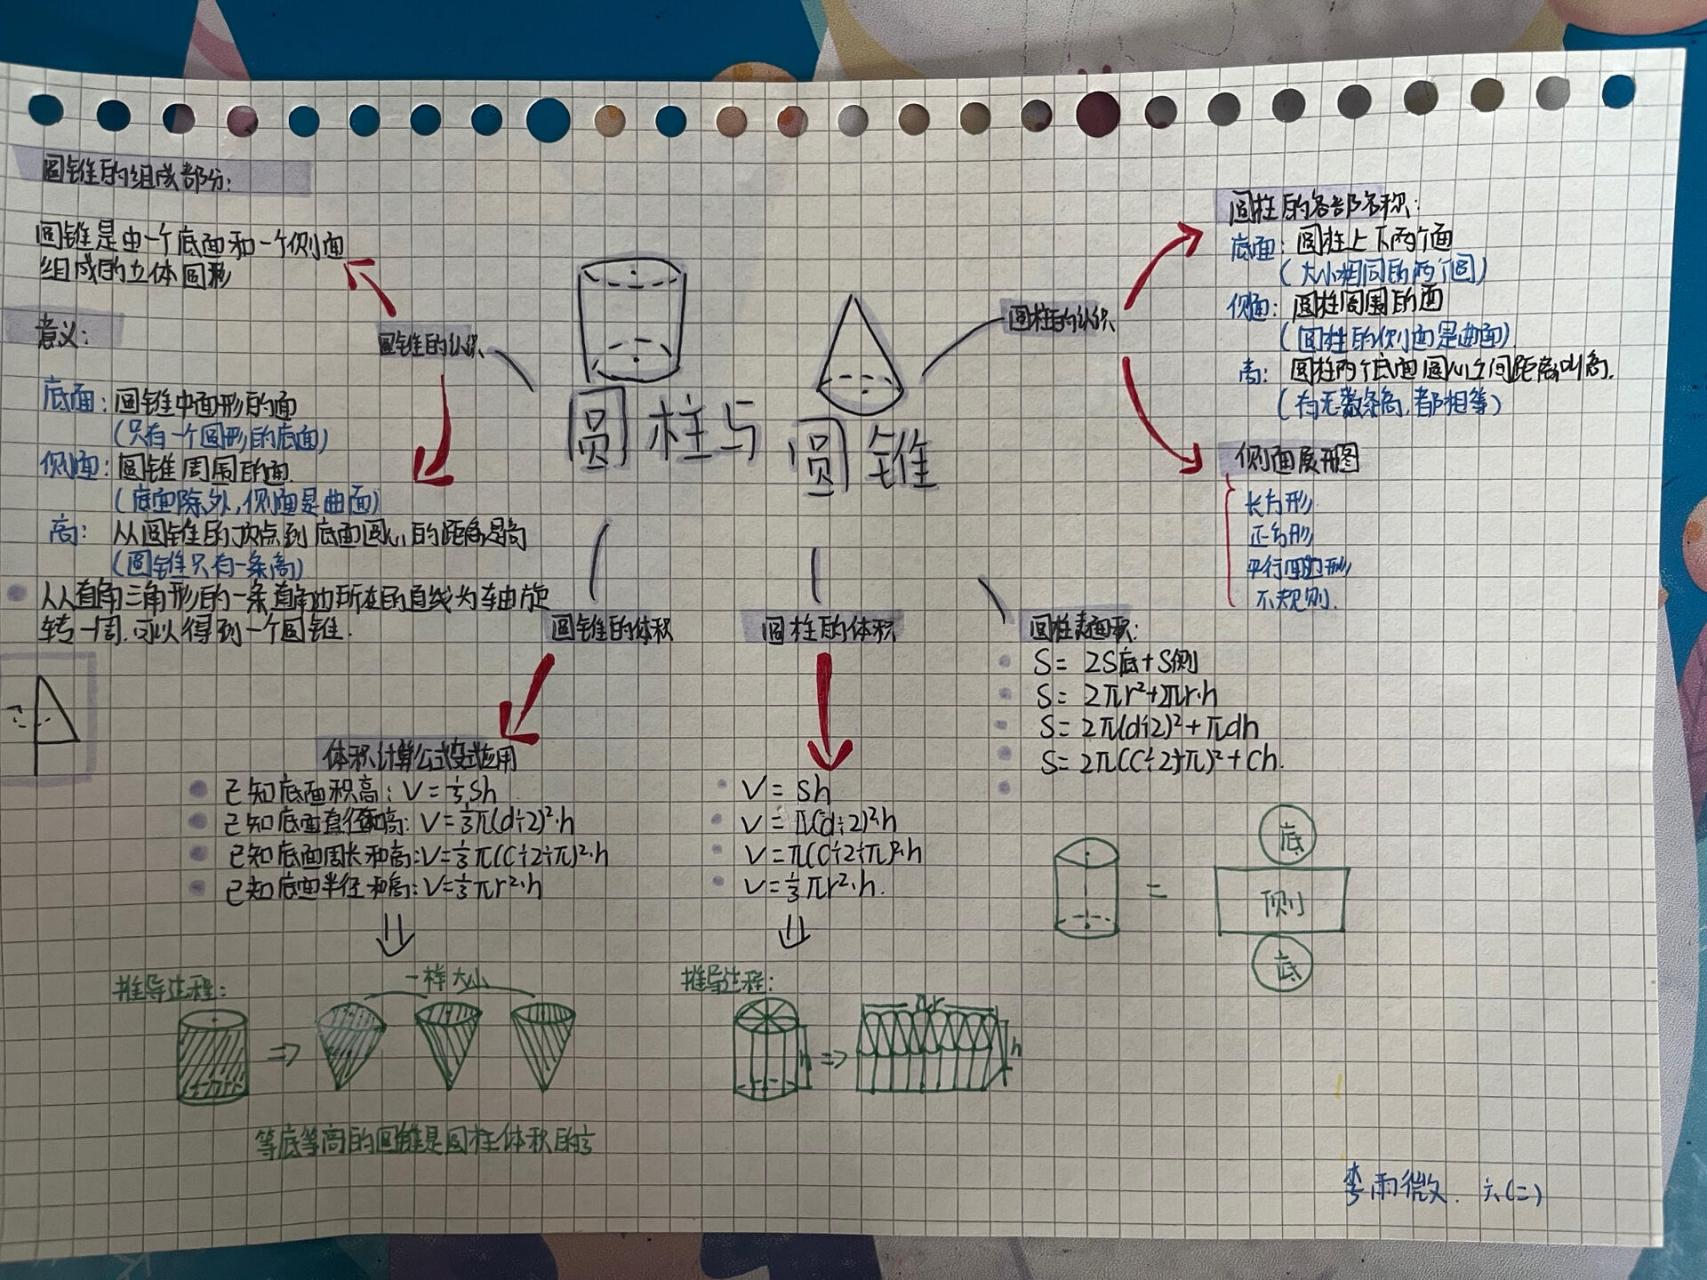 圆锥的组成部分:
圆锥是由一个底面和一个侧面
组成的立体图形
意义:
底面: 圆锥中面形的面
(只有一个圆形的底面)
侧面: 圆锥周围的面.
(底面除外,侧面是曲面)
高: 从圆锥的顶点到底面圆心的距离是高
(圆锥只有一条高)
从直角三角形的一条直角边所在的直线为轴旋
转一周.可以得到一个圆锥.
圆锥的认识
圆柱与圆锥
圆柱的认识
圆柱的各部名称:
底面: 圆柱上下两个面
(大小相同的两个圆)
侧面: 圆柱周围的面
(圆柱的侧面是曲面)
高: 圆柱两个底面圆心之间距离叫高.
(有无数条高,都相等)
侧面展开图
长方形
正方形
平行四边形
不规则.
圆锥的体积
体积计算公式变式应用
已知底面积高: V=⅓Sh
已知底面直径和高: V=⅓π(d÷2)²·h
已知底面周长和高:V=⅓π(C÷2÷π)²·h
已知底面半径和高: V=⅓πr²·h
推导过程:
一样大小
等底等高的圆锥是圆柱体积的⅓
圆柱的体积
V= Sh
V= π(d÷2)²·h
V=π(C÷2÷π)²·h
V=⅓πr²·h.
推导过程:
h
πr
h
圆柱表面积:
S= 2S底+S侧
S= 2πr²+2πr·h
S= 2π(d÷2)²+πdh
S= 2π(C÷2÷π)²+Ch.
=
底
侧
底
李雨微. 六(二)